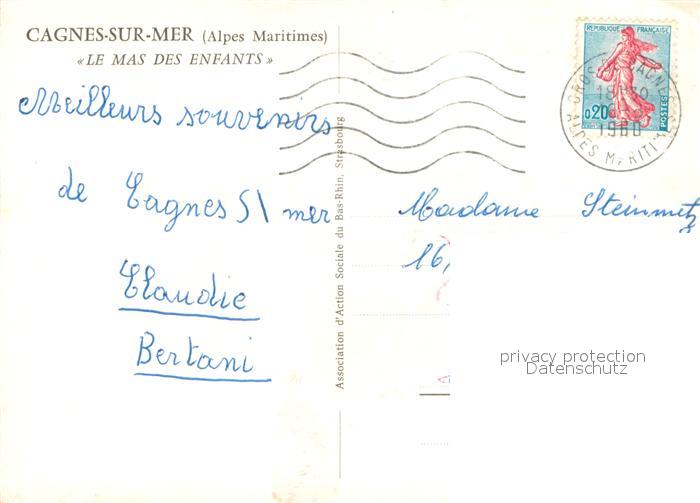 CAGNES-SUR-MER (Alpes Maritimes)
« LE MAS DES ENFANTS »
Meilleurs souvenirs
de Cagnes S/ mer
Claudie
Bertani
Association d'Action Sociale du Bas-Rhin, Strasbourg
REPUBLIQUE FRANÇAISE
0,20
POSTES
18H30
1960
ALPES MARITI
Madame Steinmetz
16,
privacy protection
Datenschutz